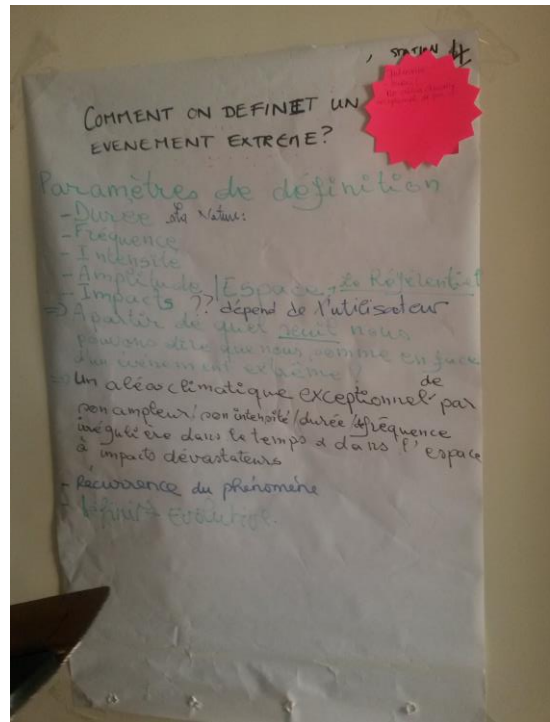 , STATION 4
COMMENT ON DEFINIET UN
EVENEMENT EXTRÊME?
Paramètres de définition
- Durée sa Nature:
- Fréquence
- Intensité
- Amplitude / Espace, Le Référentiel
- Impacts ?? dépend de l'utilisateur
=> A partir de quel seuil nous
pouvons dire que nous somme en face
d'un évènement extrême?
=> Un aléas climatique exceptionnel de par
son ampleur / son intensité / durée / fréquence
irrégulière dans le temps & dans l'espace
à impacts dévastateurs
- Récurrence du phénomène
- Définit° Evolutive.